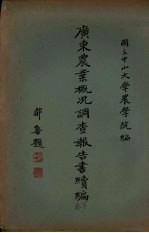 國立中山大學農學院編
廣東農業概況調查報告書續編
鄒魯題